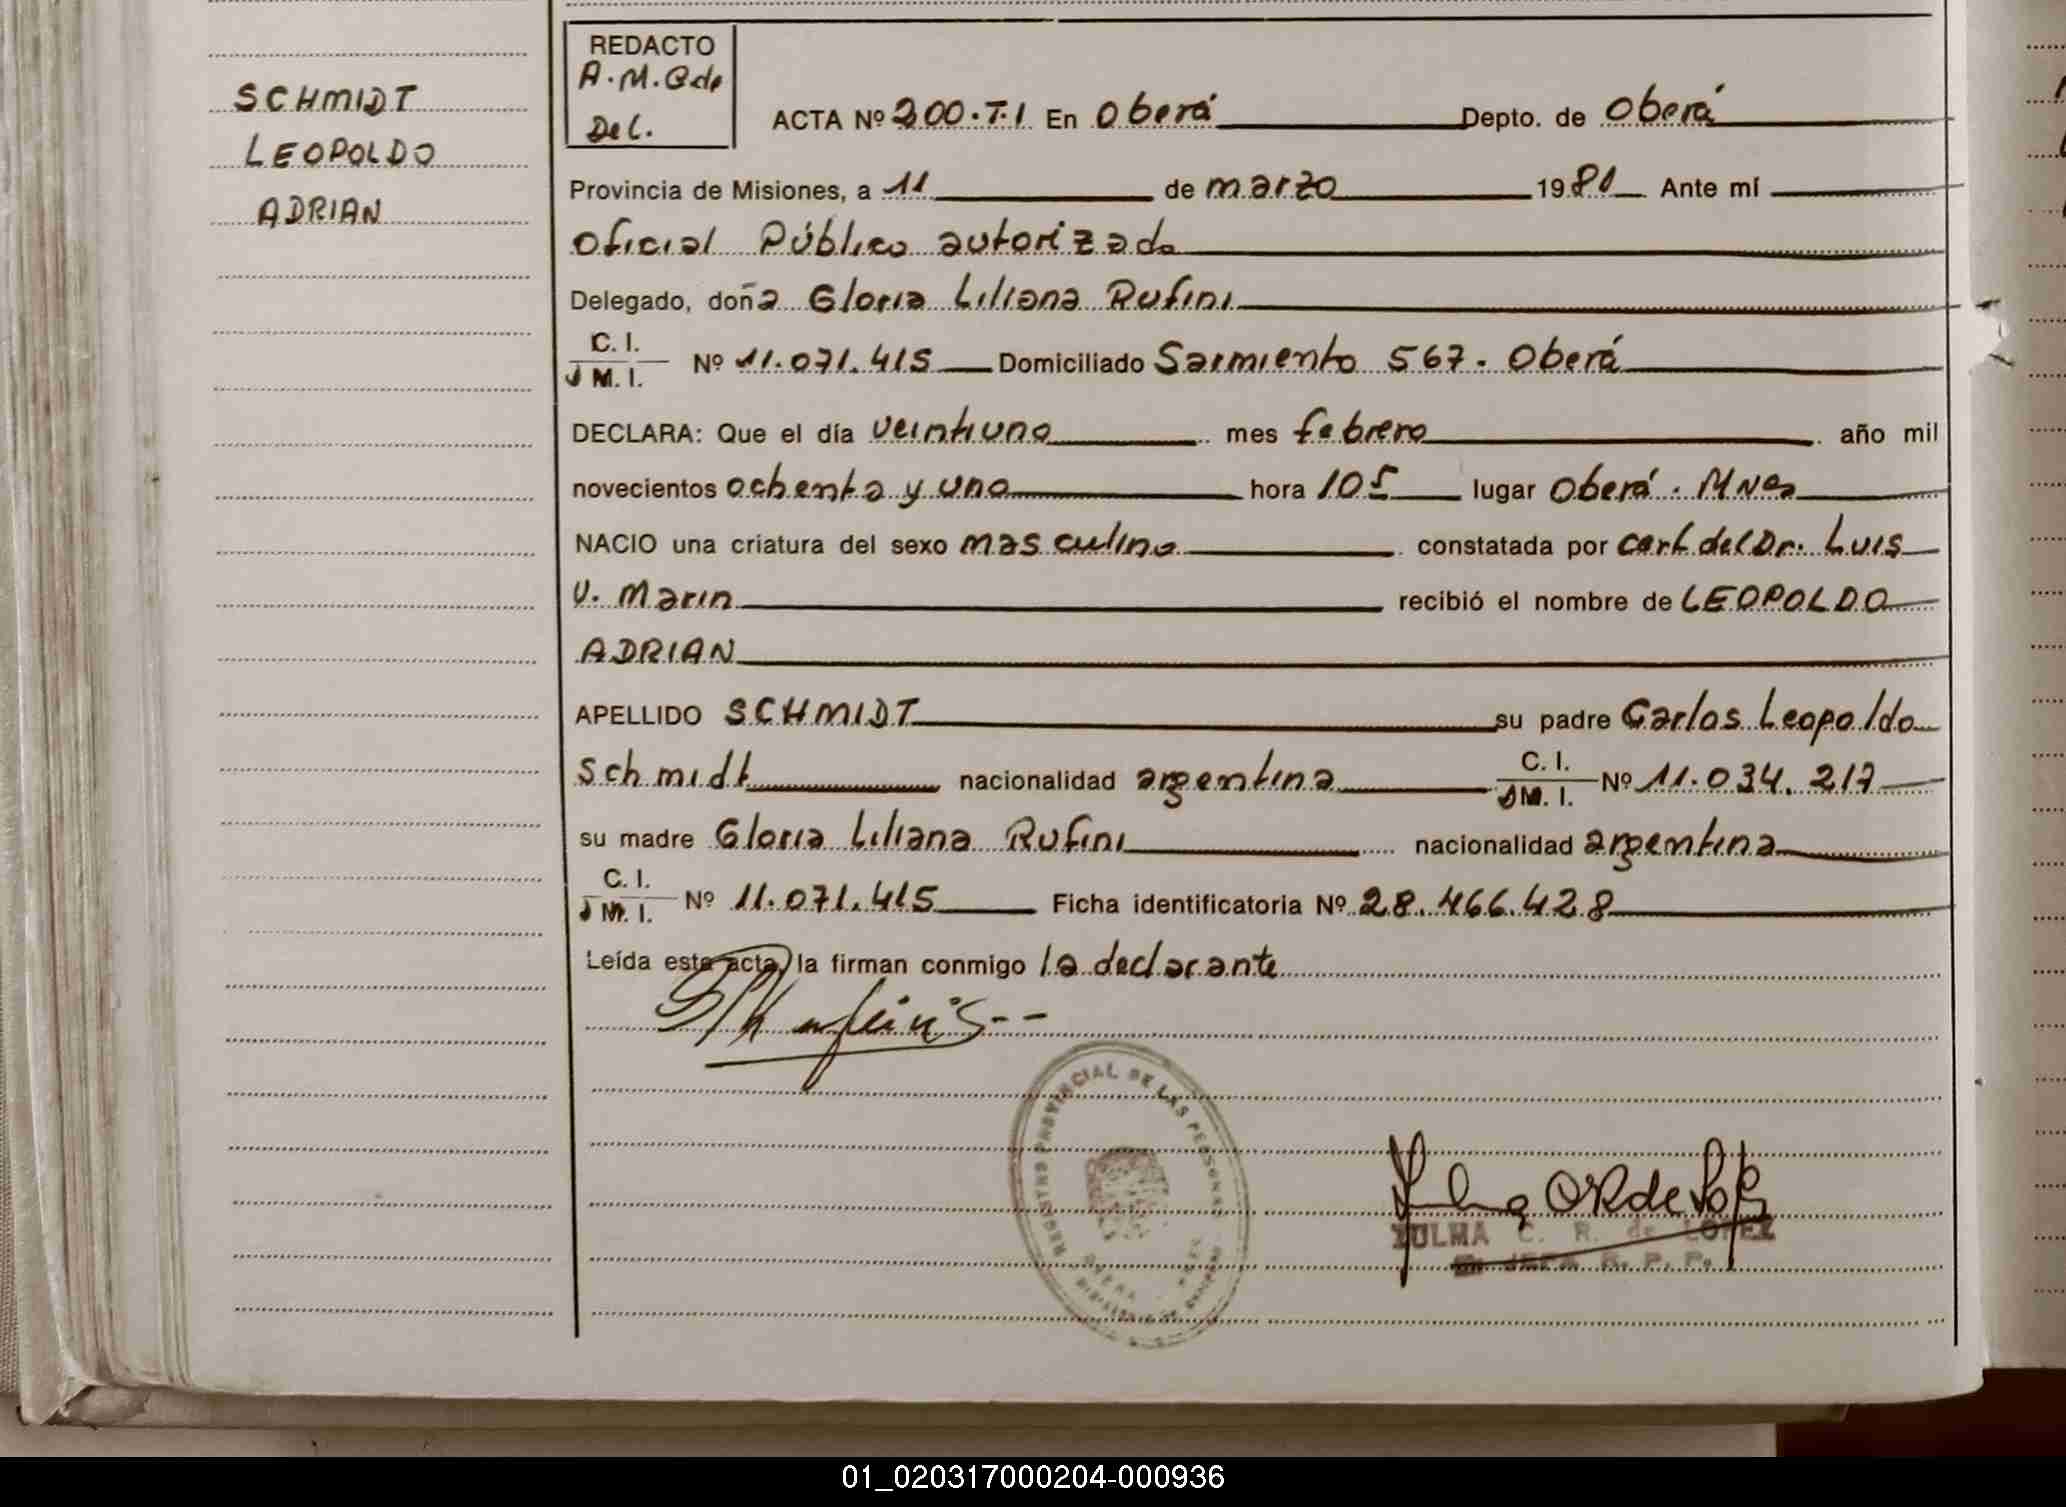 SCHMIDT
LEOPOLDO
ADRIAN
REDACTO
A.M.G de
Del.
ACTA Nº 200.T.I En Oberá Depto. de Oberá
Provincia de Misiones, a 11 de marzo 1981 Ante mí
Oficial Público autorizado
Delegado, doña Gloria Liliana Rufini
C. I.
M. I. Nº 11.071.415 Domiciliado Sarmiento 567. Oberá
DECLARA: Que el día veintiuno mes febrero año mil
novecientos ochenta y uno hora 105 lugar Oberá. Mnes
NACIO una criatura del sexo masculino constatada por cert del Dr. Luis
V. Marin recibió el nombre de LEOPOLDO
ADRIAN
APELLIDO SCHMIDT su padre Carlos Leopoldo
Schmidt nacionalidad argentina C. I. M. I. Nº 11.034.217
su madre Gloria Liliana Rufini nacionalidad argentina
C. I.
M. I. Nº 11.071.415 Ficha identificatoria Nº 28.466.428
Leída esta acta, la firman conmigo la declarante
REGISTRO PROVINCIAL DE LAS PERSONAS
OBERA
ZULMA C. R. de LOPEZ
JEFA R. P. P.
01_020317000204-000936